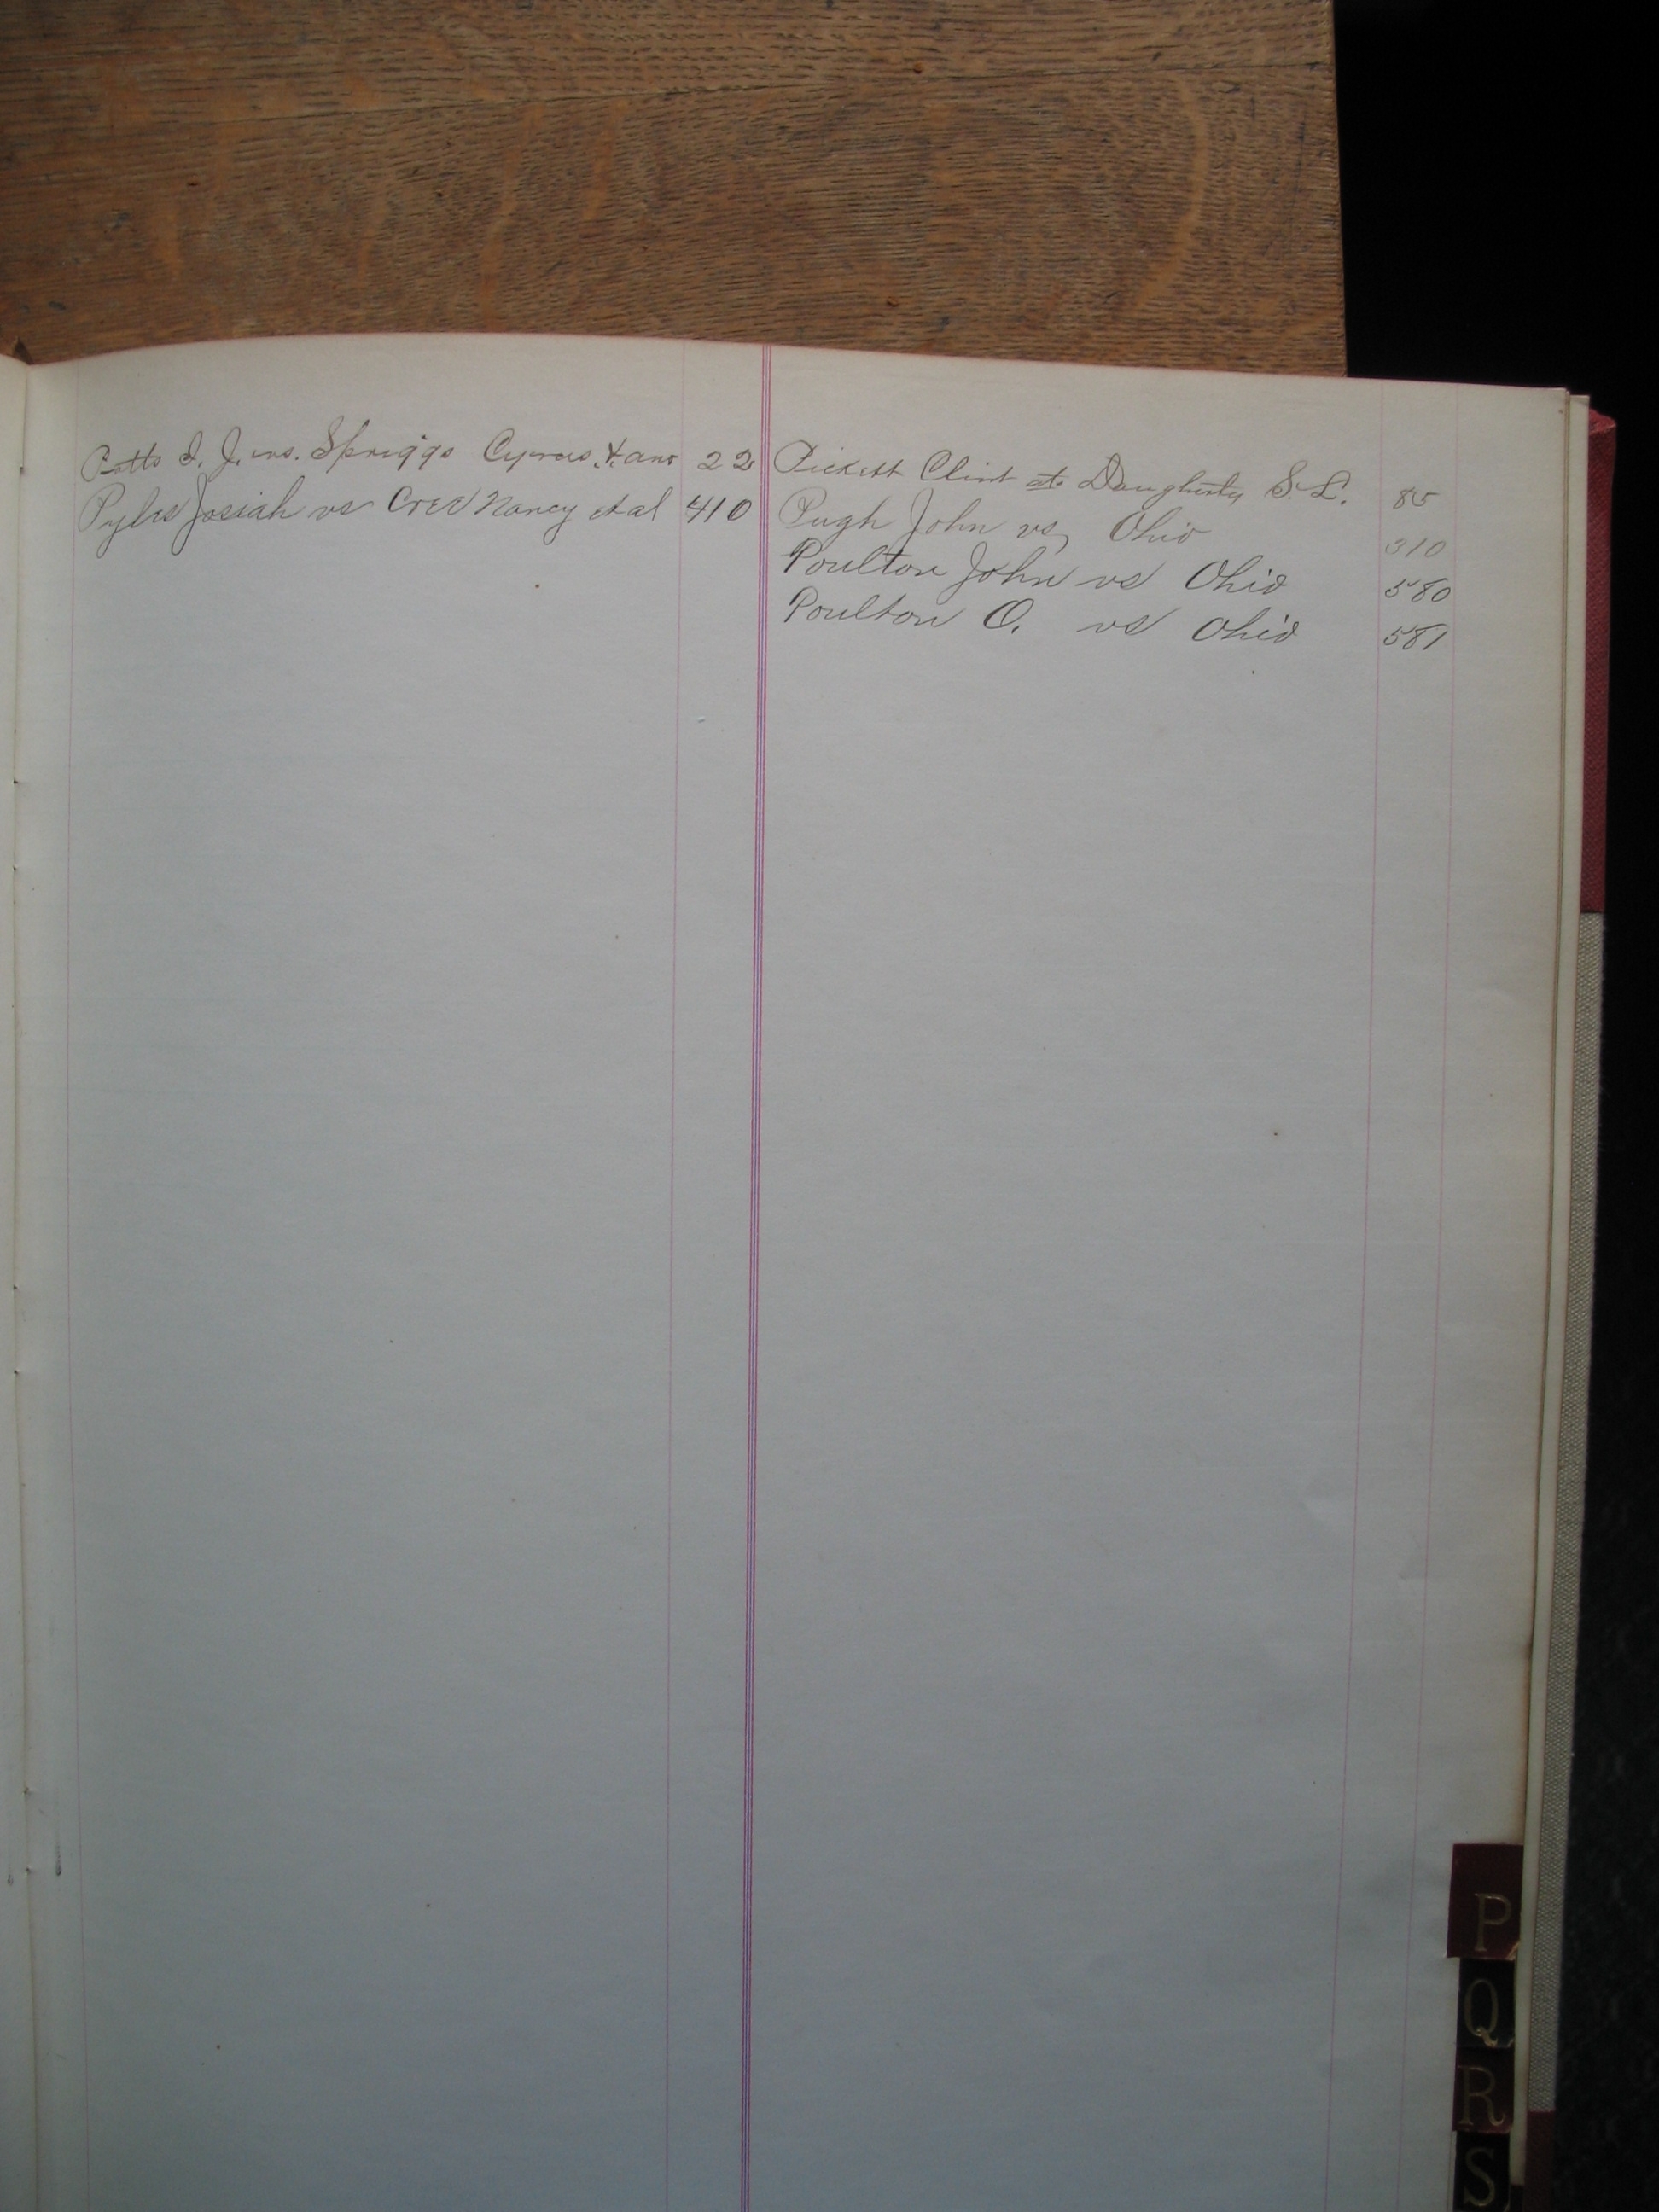 Potts I. J. vs. Spriggs Cyrus & ano 22
Pyles Josiah vs Orer Nancy et al 410
Pickett Clint ats Daugherty S. L. 85
Pugh John vs Ohio 310
Poulton John vs Ohio 580
Poulton O. vs Ohio 581
P
Q
R
S